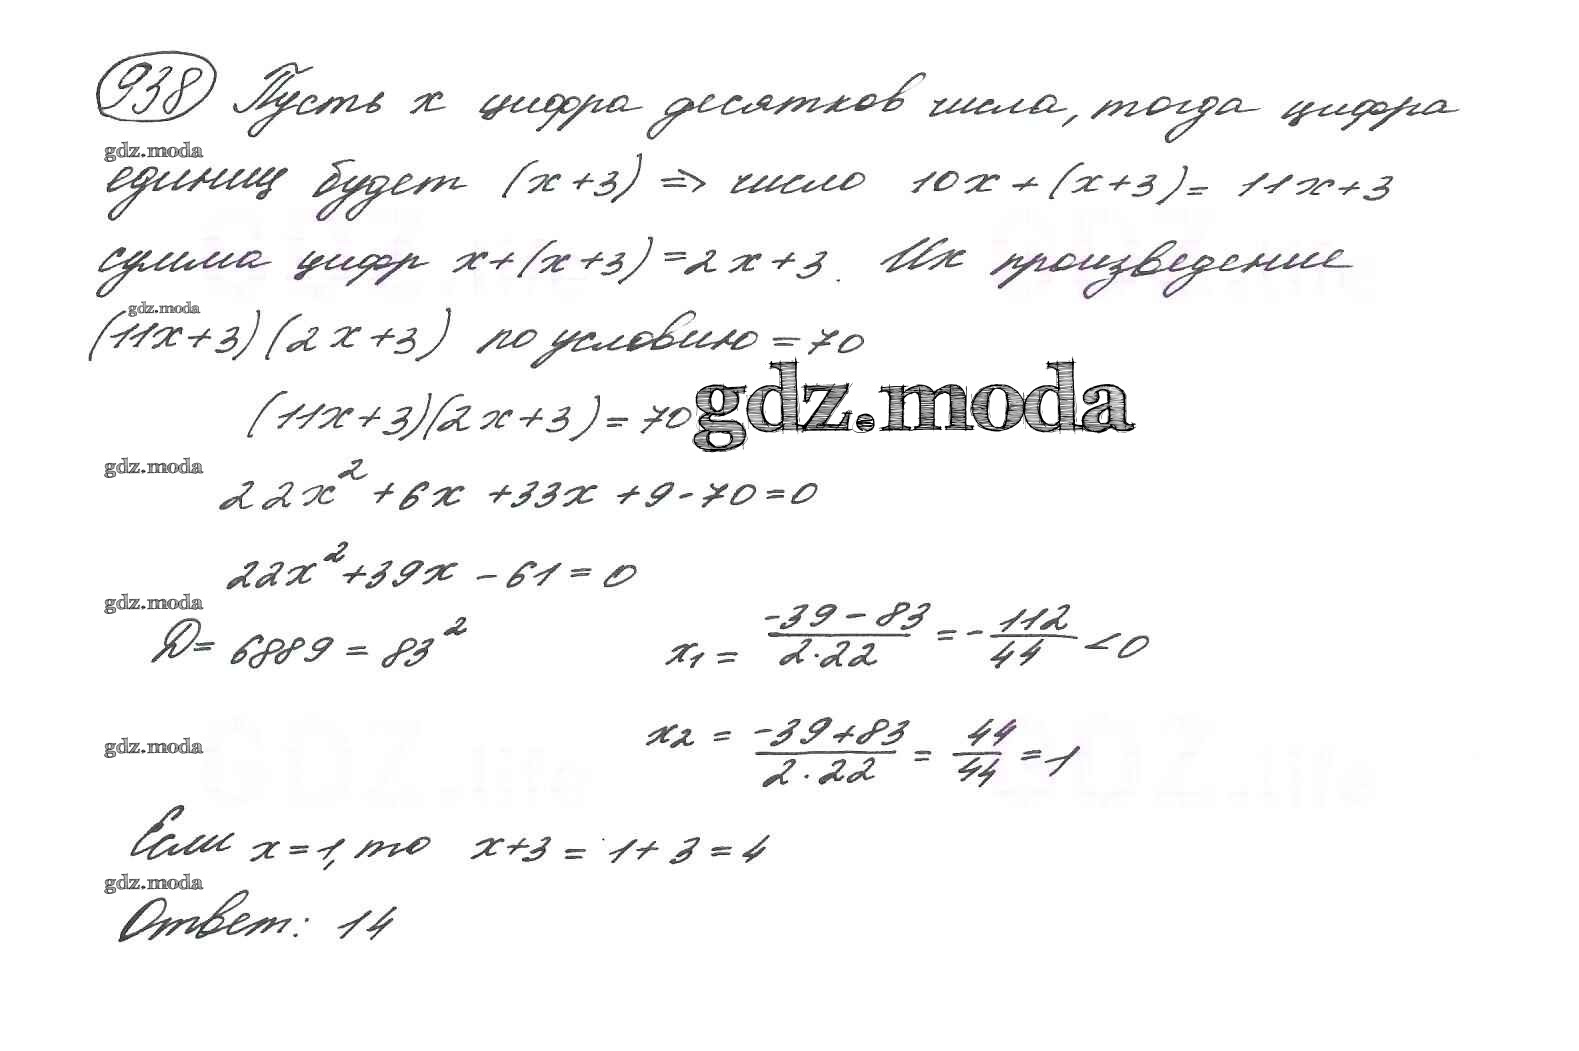 938 Пусть x цифра десятков числа, тогда цифра
gdz.moda
единиц будет (x+3) => число 10x + (x+3) = 11x+3
сумма цифр x+(x+3)=2x+3. Их произведение
gdz.moda
(11x+3)(2x+3) по условию = 70
(11x+3)(2x+3) = 70
gdz.moda
gdz.moda
22x² + 6x + 33x + 9 - 70 = 0
22x² + 39x - 61 = 0
gdz.moda
D = 6889 = 83² x₁ = (-39 - 83)/(2·22) = -112/44 < 0
GDZ.life GDZ.life
gdz.moda
x₂ = (-39+83)/(2·22) = 44/44 = 1
Если x = 1, то x+3 = 1+3 = 4
gdz.moda
Ответ: 14